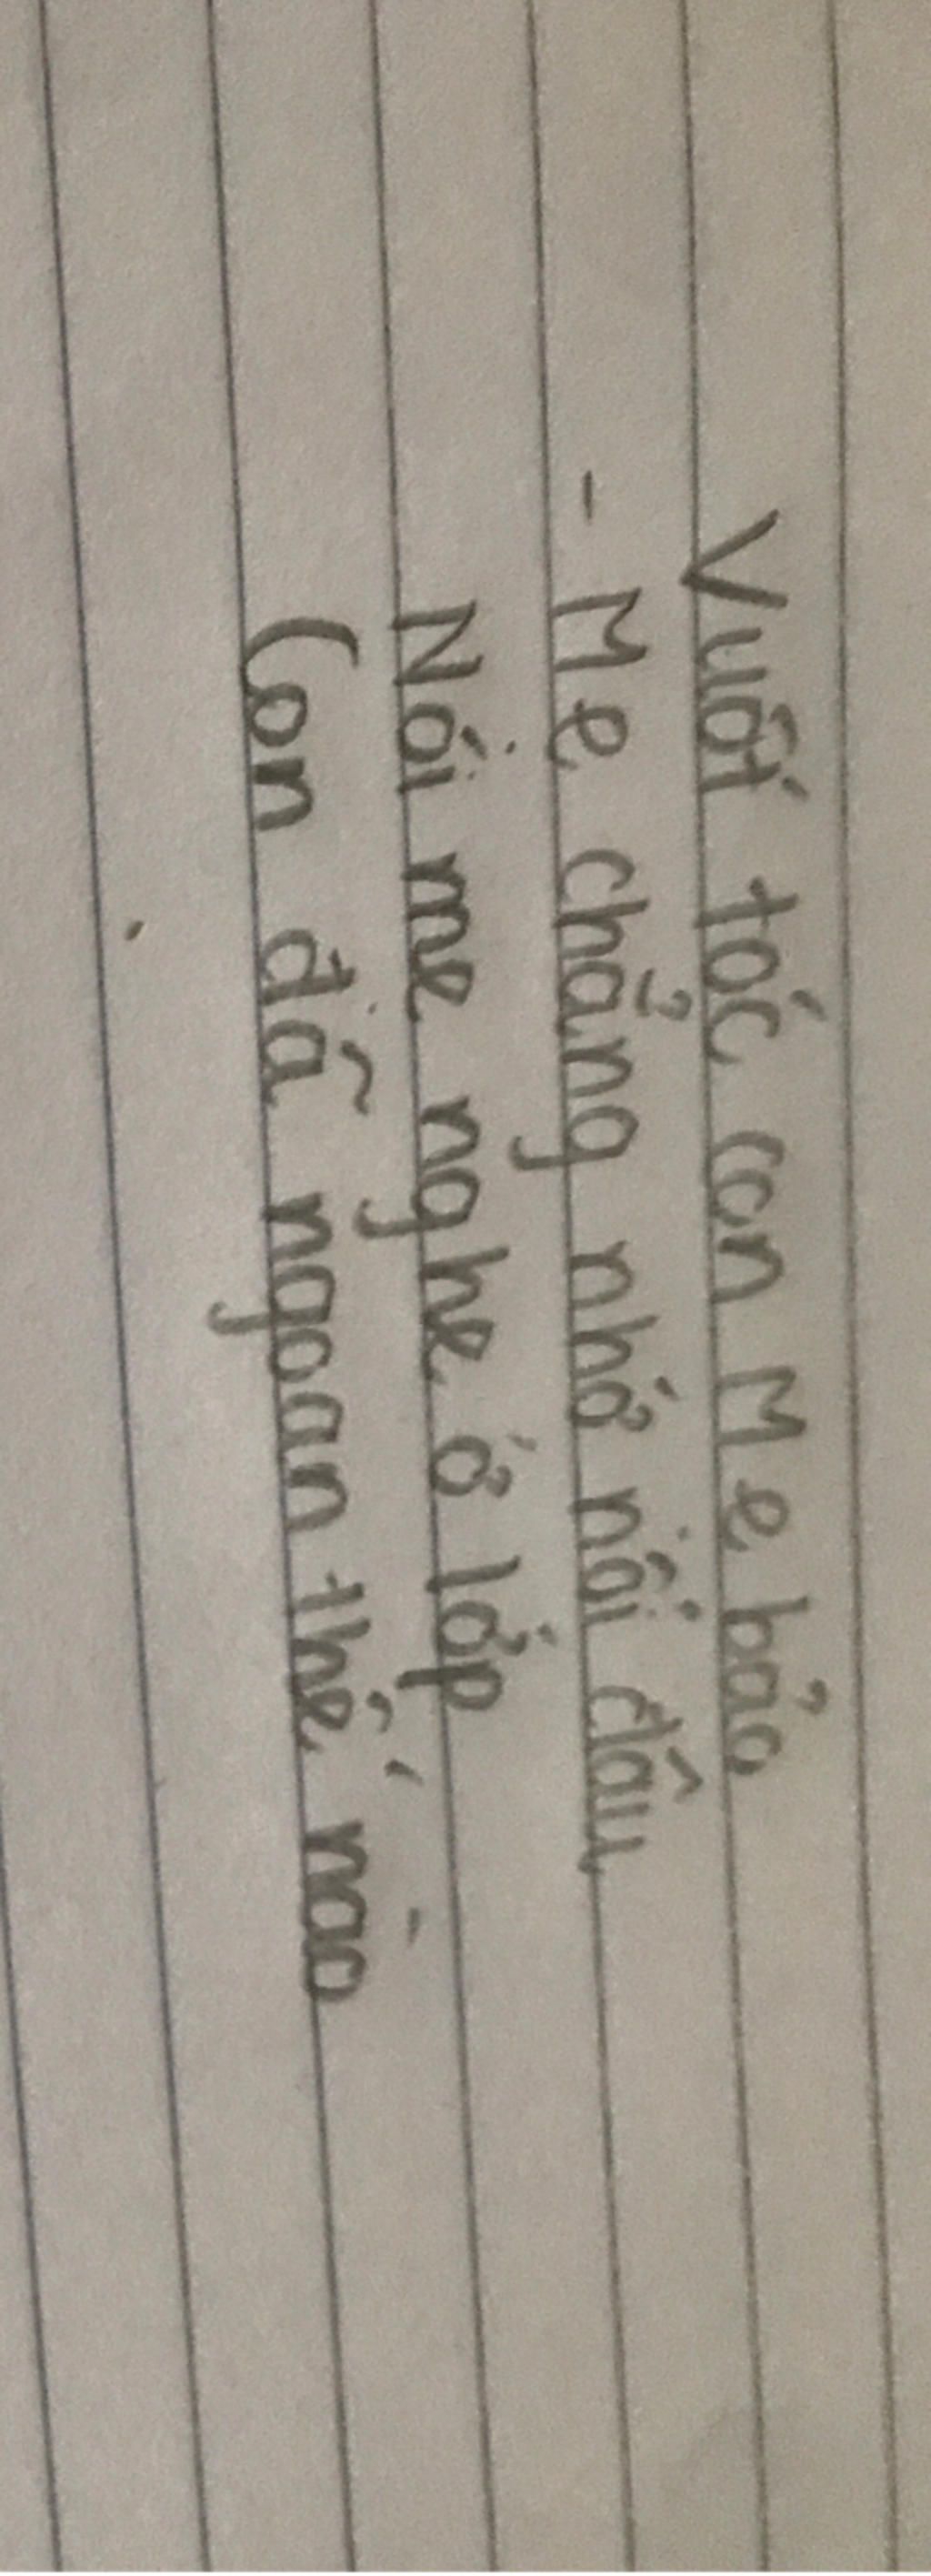 Vuốt tóc con Mẹ bảo
- Mẹ chẳng nhớ nổi đâu
Nói mẹ nghe ở lớp
Con đã ngoan thế nào